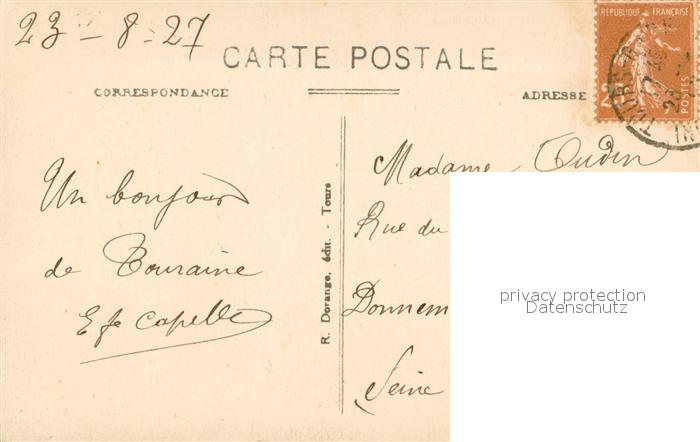 23 - 8 - 27
CARTE POSTALE
CORRESPONDANCE
ADRESSE
REPUBLIQUE FRANÇAISE
TOURS
Un bonjour
de Touraine
R. Dorange, édit. - Tours
Madame Oudin
Rue du
Donnem
Seine
privacy protection
Datenschutz